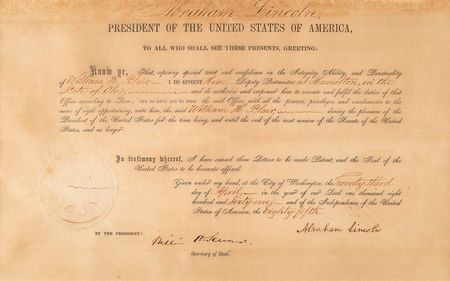 Abraham Lincoln,
PRESIDENT OF THE UNITED STATES OF AMERICA,
TO ALL WHO SHALL SEE THESE PRESENTS, GREETING:
Know ye, That, reposing special trust and confidence in the Integrity, Ability, and Punctuality
of William H. Blair I DO APPOINT him Deputy Postmaster, at Hamilton, in the
State of Ohio, and do authorize and empower him to execute and fulfil the duties of that
Office according to Law; AND TO HAVE AND TO HOLD the said Office, with all the powers, privileges, and emoluments to the
same of right appertaining, unto him, the said William H. Blair, during the pleasure of the
President of the United States for the time being, and until the end of the next session of the Senate of the United
States, and no longer.
In testimony whereof, I have caused these Letters to be made Patent, and the Seal of the
United States to be hereunto affixed.
Given under my hand, at the City of Washington, the Twenty third
day of April, in the year of our Lord one thousand eight
hundred and Sixty one, and of the Independence of the United
States of America, the Eighty fifth.
Abraham Lincoln
BY THE PRESIDENT:
William H. Seward
Secretary of State.